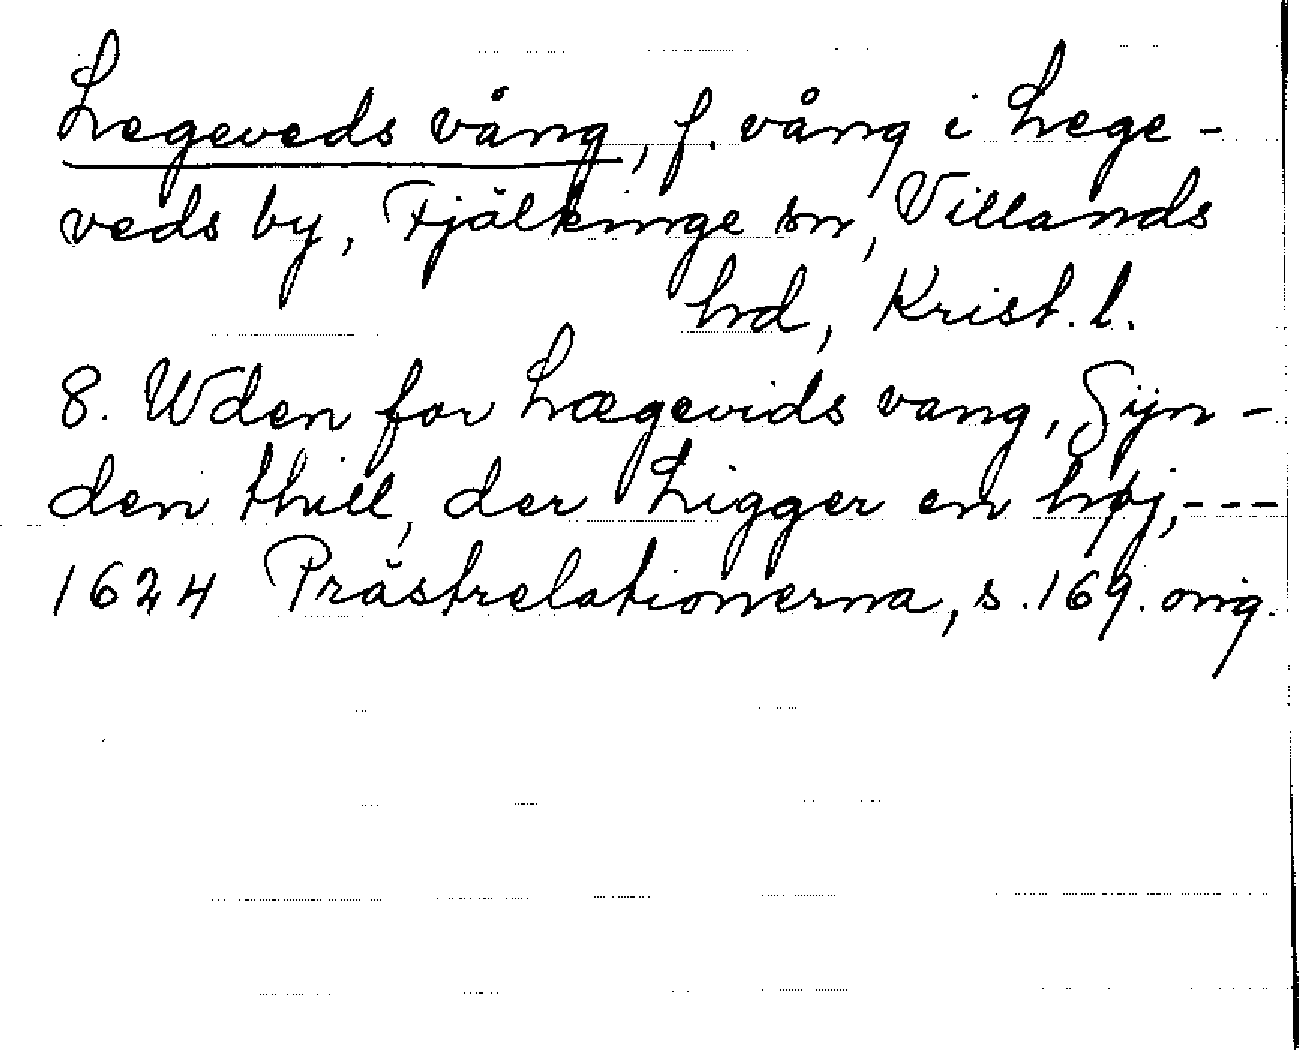 Legeveds vång, f. vång i Lege-
veds by, Fjälkinge sn, Villands
hrd, Krist. l.
8. Wden for Lægevids vang, Syn-
den thill, der Ligger en høj, ---
1624 Prästrelationerna, s. 169. orig.